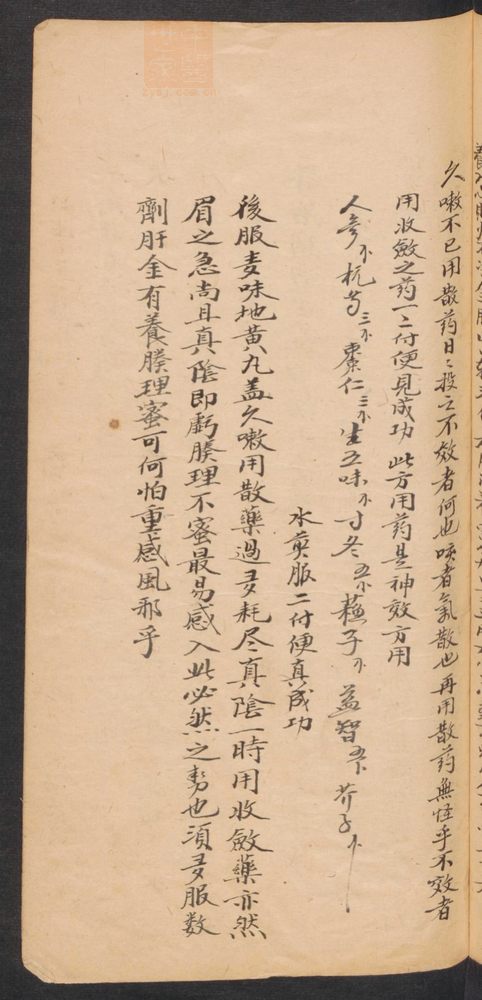 久嗽不已用散药日〻投之不效者何也咳者氣散也再用散药無怪乎不效者
用收斂之药一二付便見成功 此方用药是神效方用
人参 杭芍三 棗仁三 生五味 寸冬 蘓子 益智 芥子
水煎服二付便真成功
後服麦味地黄丸盖久嗽用散藥過多耗尽真陰一時用收斂藥亦然
眉之急尚且真陰即虧腠理不蜜最易感入此必然之勢也須多服数
劑肝金有養腠理蜜可何怕重感風邪乎